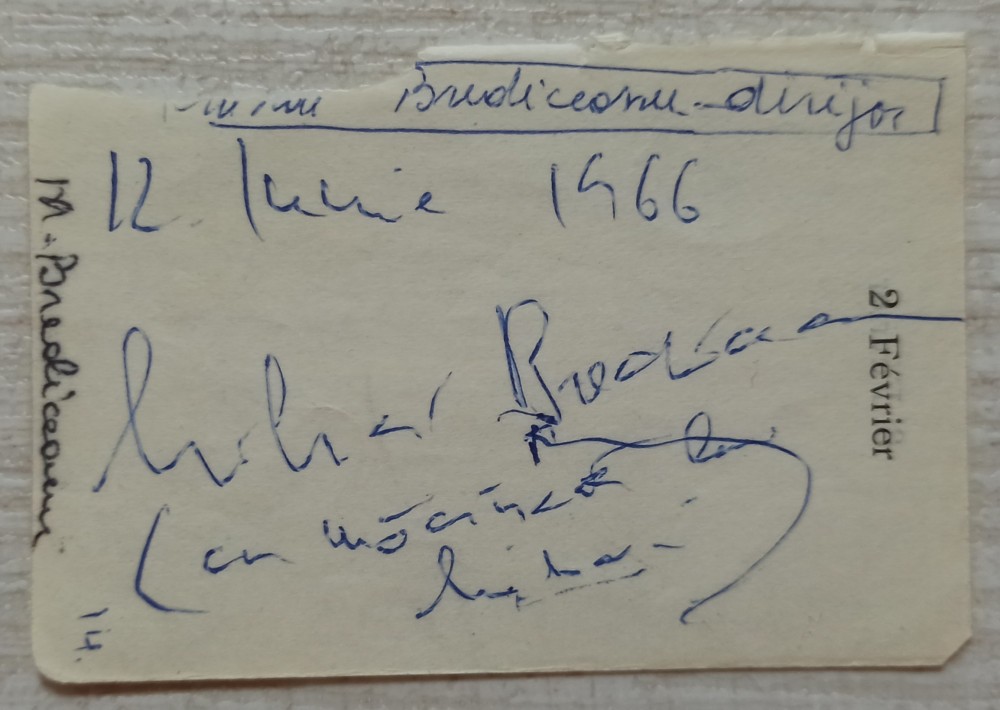 Brediceanu - dirijor
12 Iunie 1966
Mihai Bredicea
(cu mâna
Mihai
M. Brediceanu
14.
2 Février